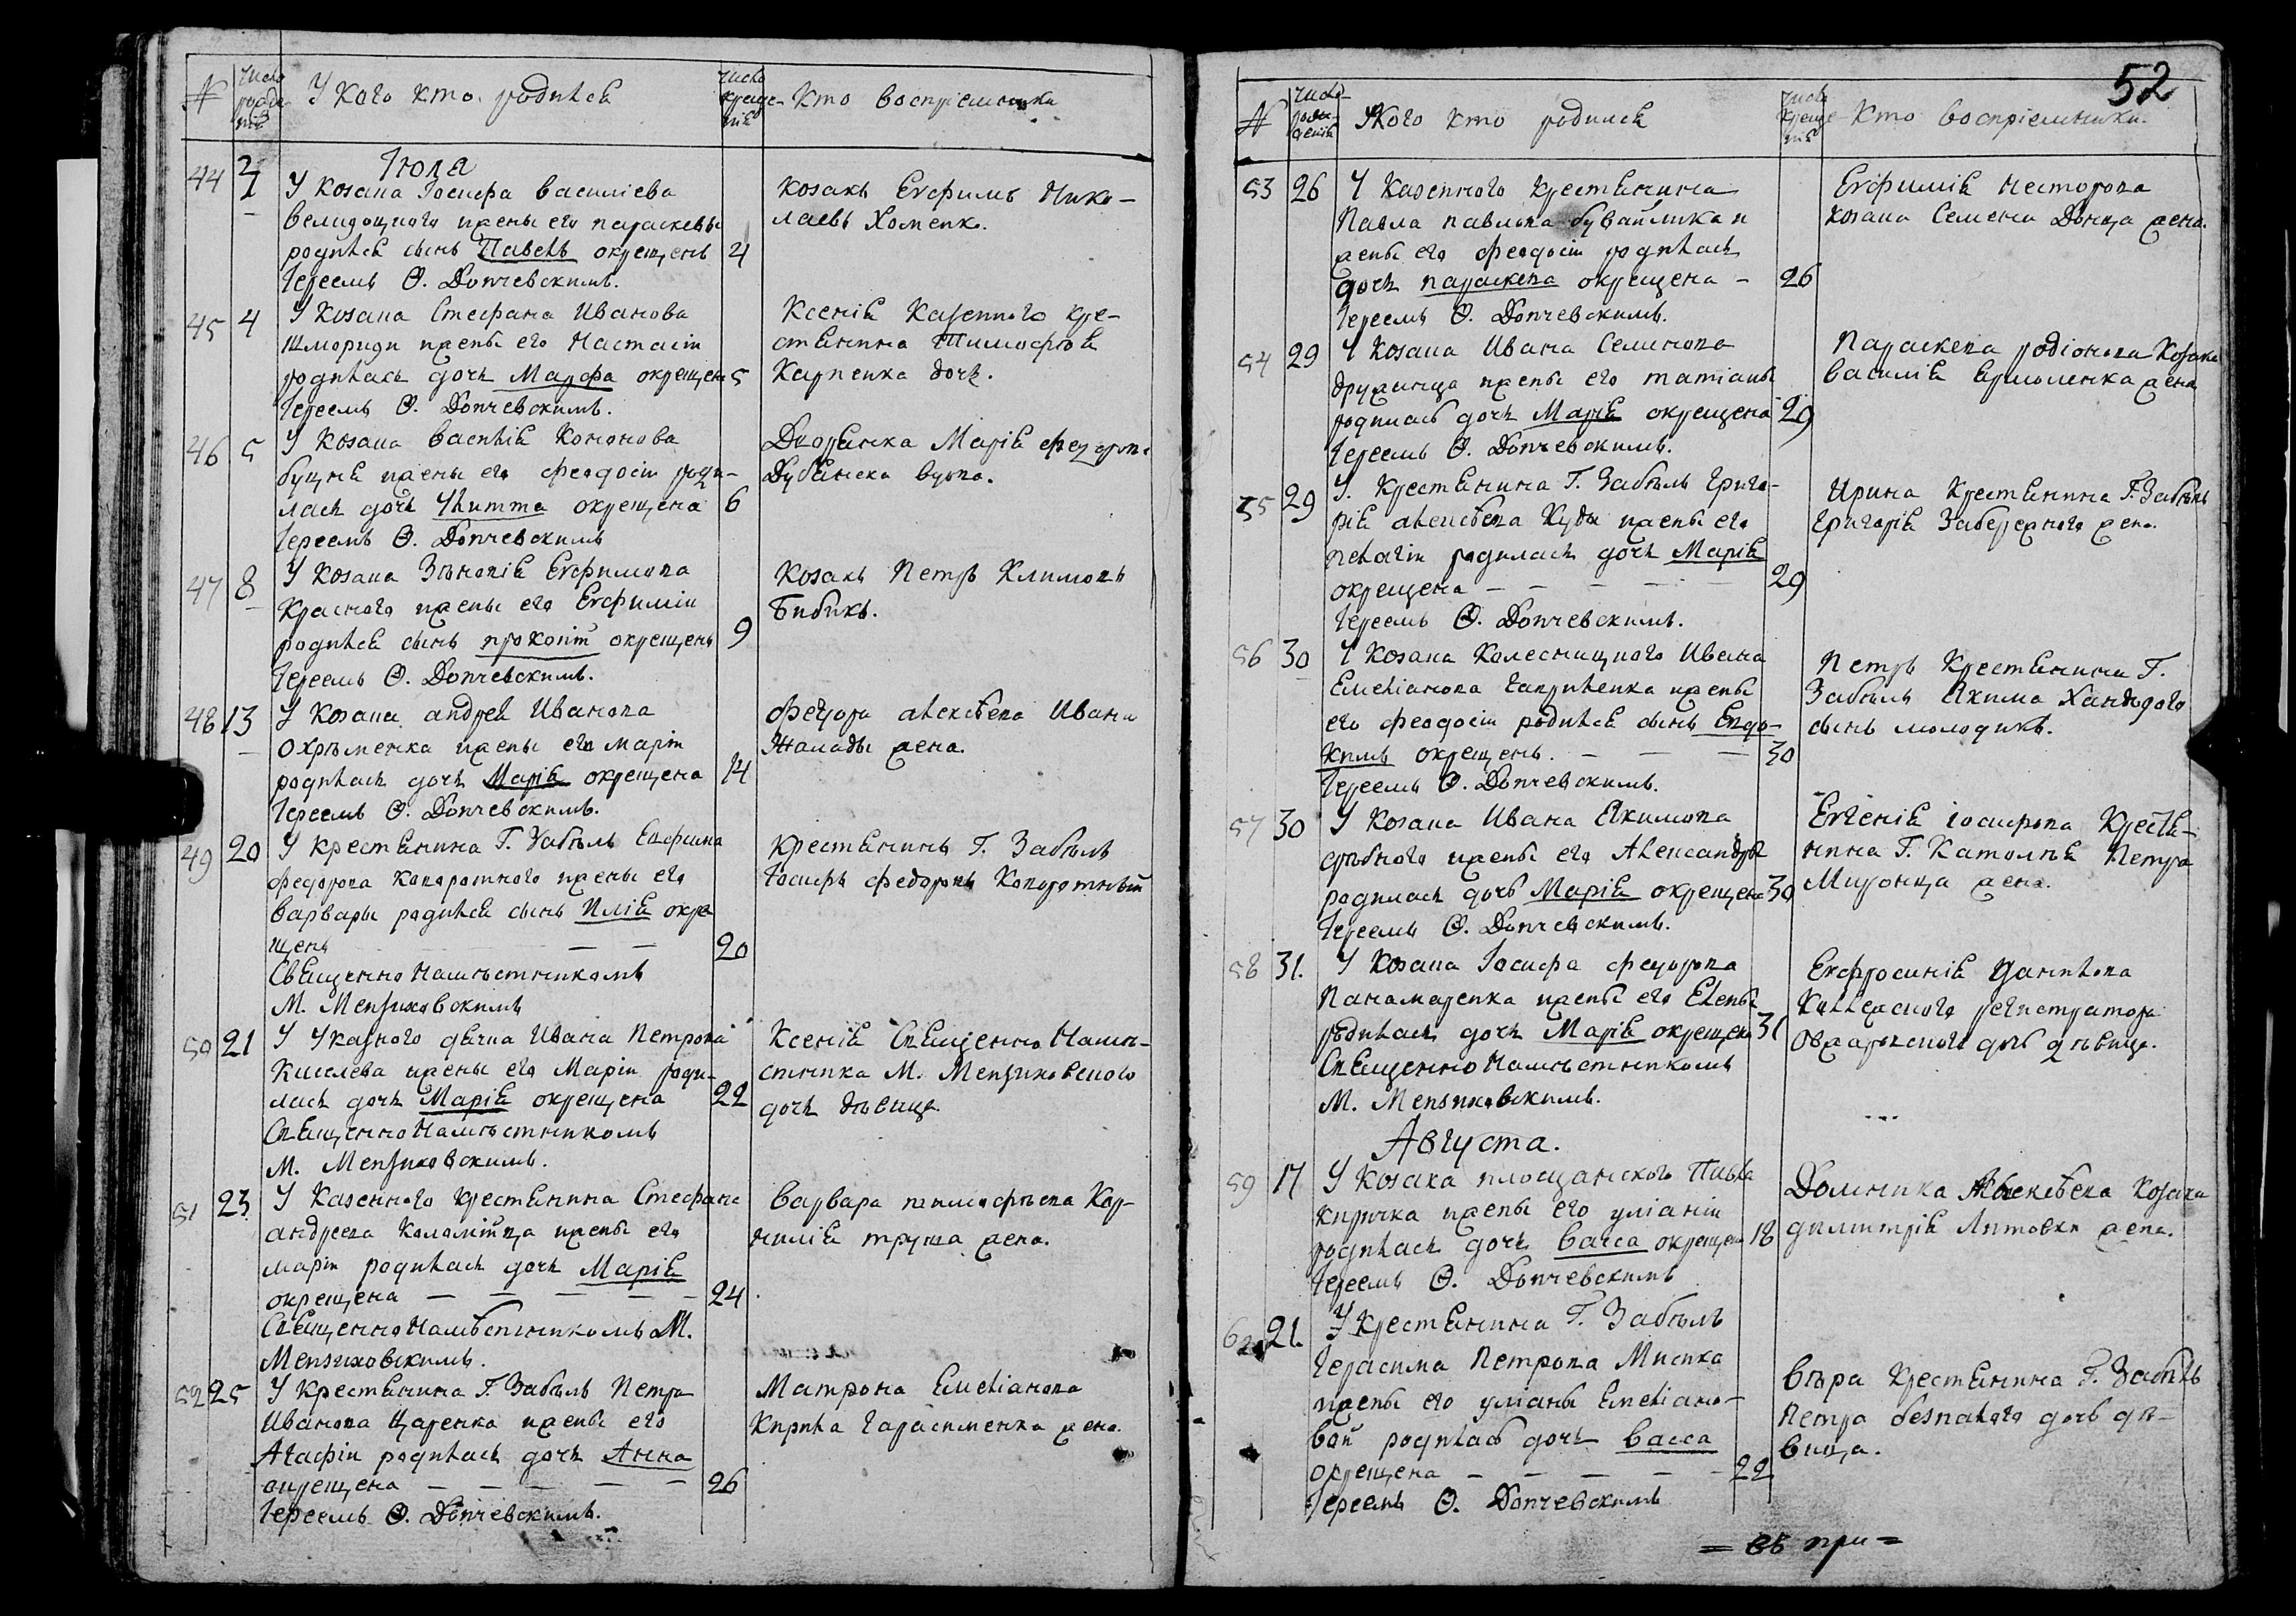 №
число рожде-нія
У кого кто родился
число креще-нія
кто воспріемники
Іюля
44
2
У козака Іосифа василіева
жены его параскевы
родился сынъ Павелъ окрещенъ
4
Іереемъ Ѳ. Дончевскимъ.
козакъ Евфимъ Нико-
лаевъ Хоменко.
45
4
У козака Стефана Иванова
Шмориди жены его Настасіи
родилась дочь Марфа окрещена
5
Іереемъ Ѳ. Дончевскимъ.
Ксенія Казенного кре-
стянина Тимофѣя
Карпенка дочь.
46
5
У козака василія Кононова
жены его феодосіи роди-
лась дочь Улитта окрещена
6
Іереемъ Ѳ. Дончевскимъ
Дворянка Марія
вдова.
47
8
У козака Зѣновія Евфимова
Красного жены его Евфиміи
родился сынъ прокопій окрещенъ
9
Іереемъ Ѳ. Дончевскимъ.
козакъ Петръ Климовъ
Бибикъ.
48
13
У козака андрея Иванова
Охрѣменка жены его маріи
родилась дочь Марія окрещена
14
Іереемъ Ѳ. Дончевскимъ.
федора алексѣева Ивана
жена.
49
20
У крестянина Г. Забѣлъ Евфима
федорова капоротного жены его
варвары родился сынъ Илія окре
щенъ
20
Священно Намѣстникомъ
М. Мензиховскимъ
крестянинъ Г. Забѣлъ
Іосифъ федоровъ Копоротный
50
21
У Указного дячка Ивана Петрова
Киселева жены его Маріи роди-
лась дочь Марія окрещена
22
Священно Намѣстникомъ
М. Мензиховскимъ.
Ксенія Священно Намѣ-
стника М. Мензиховского
дочь дѣвица.
51
23
У Казенного крестянина Стефана
андреева Коломійца жены его
маріи родилась дочь Марія
окрещена
24
Священно Намѣстникомъ М.
Мензиховскимъ.
варвара тимофѣева Кор-
нилія труша жена.
52
25
У крестянина Г. Забѣлъ Петра
Иванова Царенка жены его
Агафіи родилась дочь Анна
окрещена
26
Іереемъ Ѳ. Дончевскимъ.
Матрона Емеліанова
Кирила Гарасименка жена.
52
№
число рож-денія
У кого кто родился
число креще-нія
Кто воспріемники.
53
26
У Казенного крестянина
Павла павлова бувайлика и
жены его феодосіи родилась
дочь параскева окрещена –
26
Іереемъ Ѳ. Дончевскимъ.
Евфимія несторова
козака Семена Донца жена.
54
29
У козака Ивана Семенова
дружинца жены его татіаны
родилась дочь Марія окрещена
29
Іереемъ Ѳ. Дончевскимъ.
Параскева родіонова Козака
василія Ермоленка жена
55
29
У крестянина Г. Забѣлъ Григо-
рія алексѣева Куды жены его
пелагіи родилась дочь Марія
окрещена
29
Іереемъ Ѳ. Дончевскимъ.
Ирина крестянина Г. Забѣлъ
Григорія Забережного жена.
56
30
У козака Колесницного Ивана
Емеліанова Гаприленка жены
его феодосіи родился сынъ Евдо-
кимъ окрещенъ.
30
Іереемъ Ѳ. Дончевскимъ.
Петръ крестянина Г.
Забѣлъ Якима
сынъ молодикъ.
57
30
У козака Ивана Якимова
срѣбного жены его Александры
родилась дочь Марія окрещена
30
Іереемъ Ѳ. Дончевскимъ.
Евгенія іосифова крестя-
нина Г. Петра
Миронца жена.
58
31.
У козака Іосифа федорова
Панамаренка жены его Елены
родилась дочь Марія окрещена
31
Священно Намѣстникомъ
М. Мензиховскимъ.
Евфросинія Данилова
Коллежского регистратора
дочь дѣвица.
Августа.
59
17
У козака площанского Павла
Кирички жены его уліаніи
родилась дочь васса окрещена
18
Іереемъ Ѳ. Дончевскимъ
Домникa Алексѣева Козака
димитрія Литовки жена.
60
21.
У крестянина Г. Забѣлъ
Герасима Петрова Мисика
жены его уліаны Емеліано-
вой родилась дочь васса
окрещена
22
Іереемъ Ѳ. Дончевскимъ
Вѣра крестянина Г. Забѣлъ
Петра безпалого дочь дѣ-
вица.
= въ при =